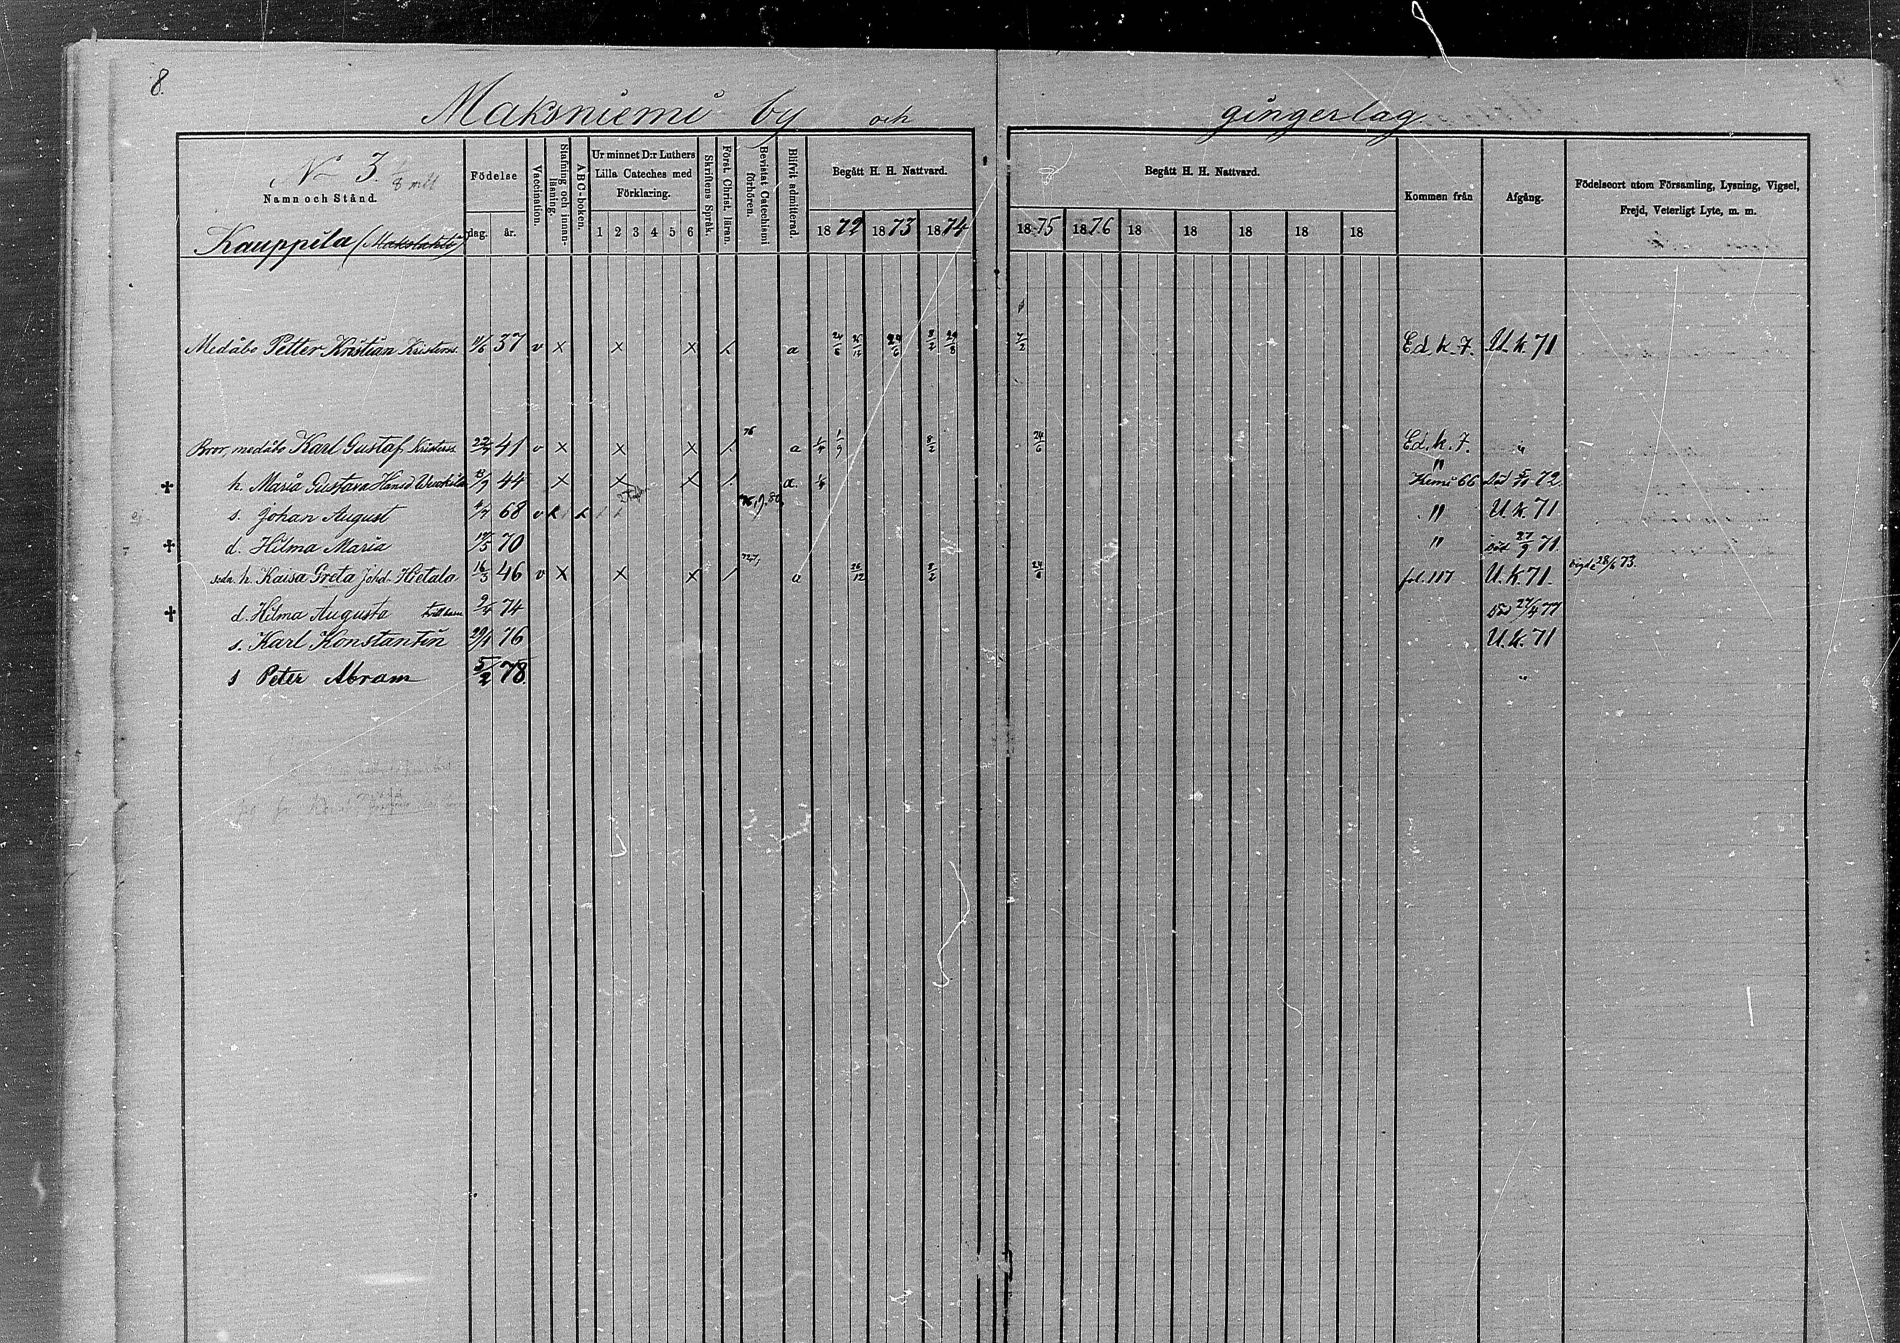 8.
Maksniemi by och gingerlag
No 3.
Namn och Stånd.
Kauppila (Makslahti)
Födelse
dag. år.
Vaccination.
Stafning och innanläsning.
ABC-boken.
Ur minnet D:r Luthers Lilla Cateches med Förklaring.
1 2 3 4 5 6
Skriftens Språk.
Först. Christ. läran.
Bevistat Catechismi förhören.
Blifvit admitterad.
Begått H. H. Nattvard.
1872 1873 1874
Begått H. H. Nattvard.
1875 1876 18 18 18 18 18
Kommen från
Afgång.
Födelseort utom Församling, Lysning, Vigsel, Frejd, Veterligt Lyte, m. m.
Medåbo Petter Kristian Kristerss. 37 v x x x a 24/6 8/2 7/2 Ed. k. 7. U. k. 71
Bror, medåbo Karl Gustaf Kristerss. 41 v x x x 76 a 1/9 8/2 24/6 Ed. k. 7. "
h. Maria Gustava Hansd 44 x x x a " Kemi 66 Död 72
s. Johan August 68 v " U. k. 71
d. Hilma Maria 70 " Död 27/9 71
sedn. h. Kaisa Greta Johd. Hietala 16/3 46 v x x x a 26/12 8/2 24/6 fol. 117 U. k. 71. vigde 28/6 73.
d. Hilma Augusta 74 Död 27/4 77
s. Karl Konstantin 29/1 76 U. k. 71
s Peter Abram 5/2 78. "